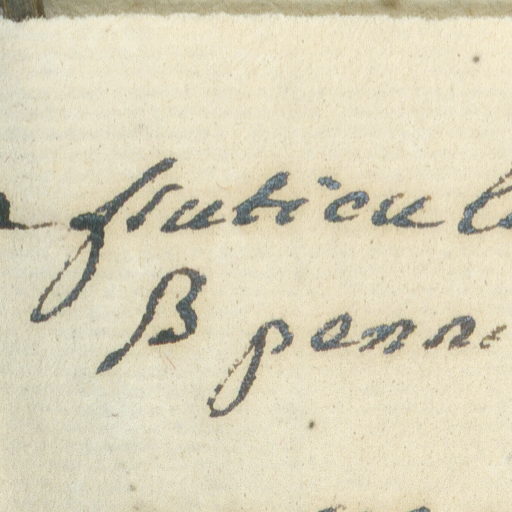 fruticul
β penn